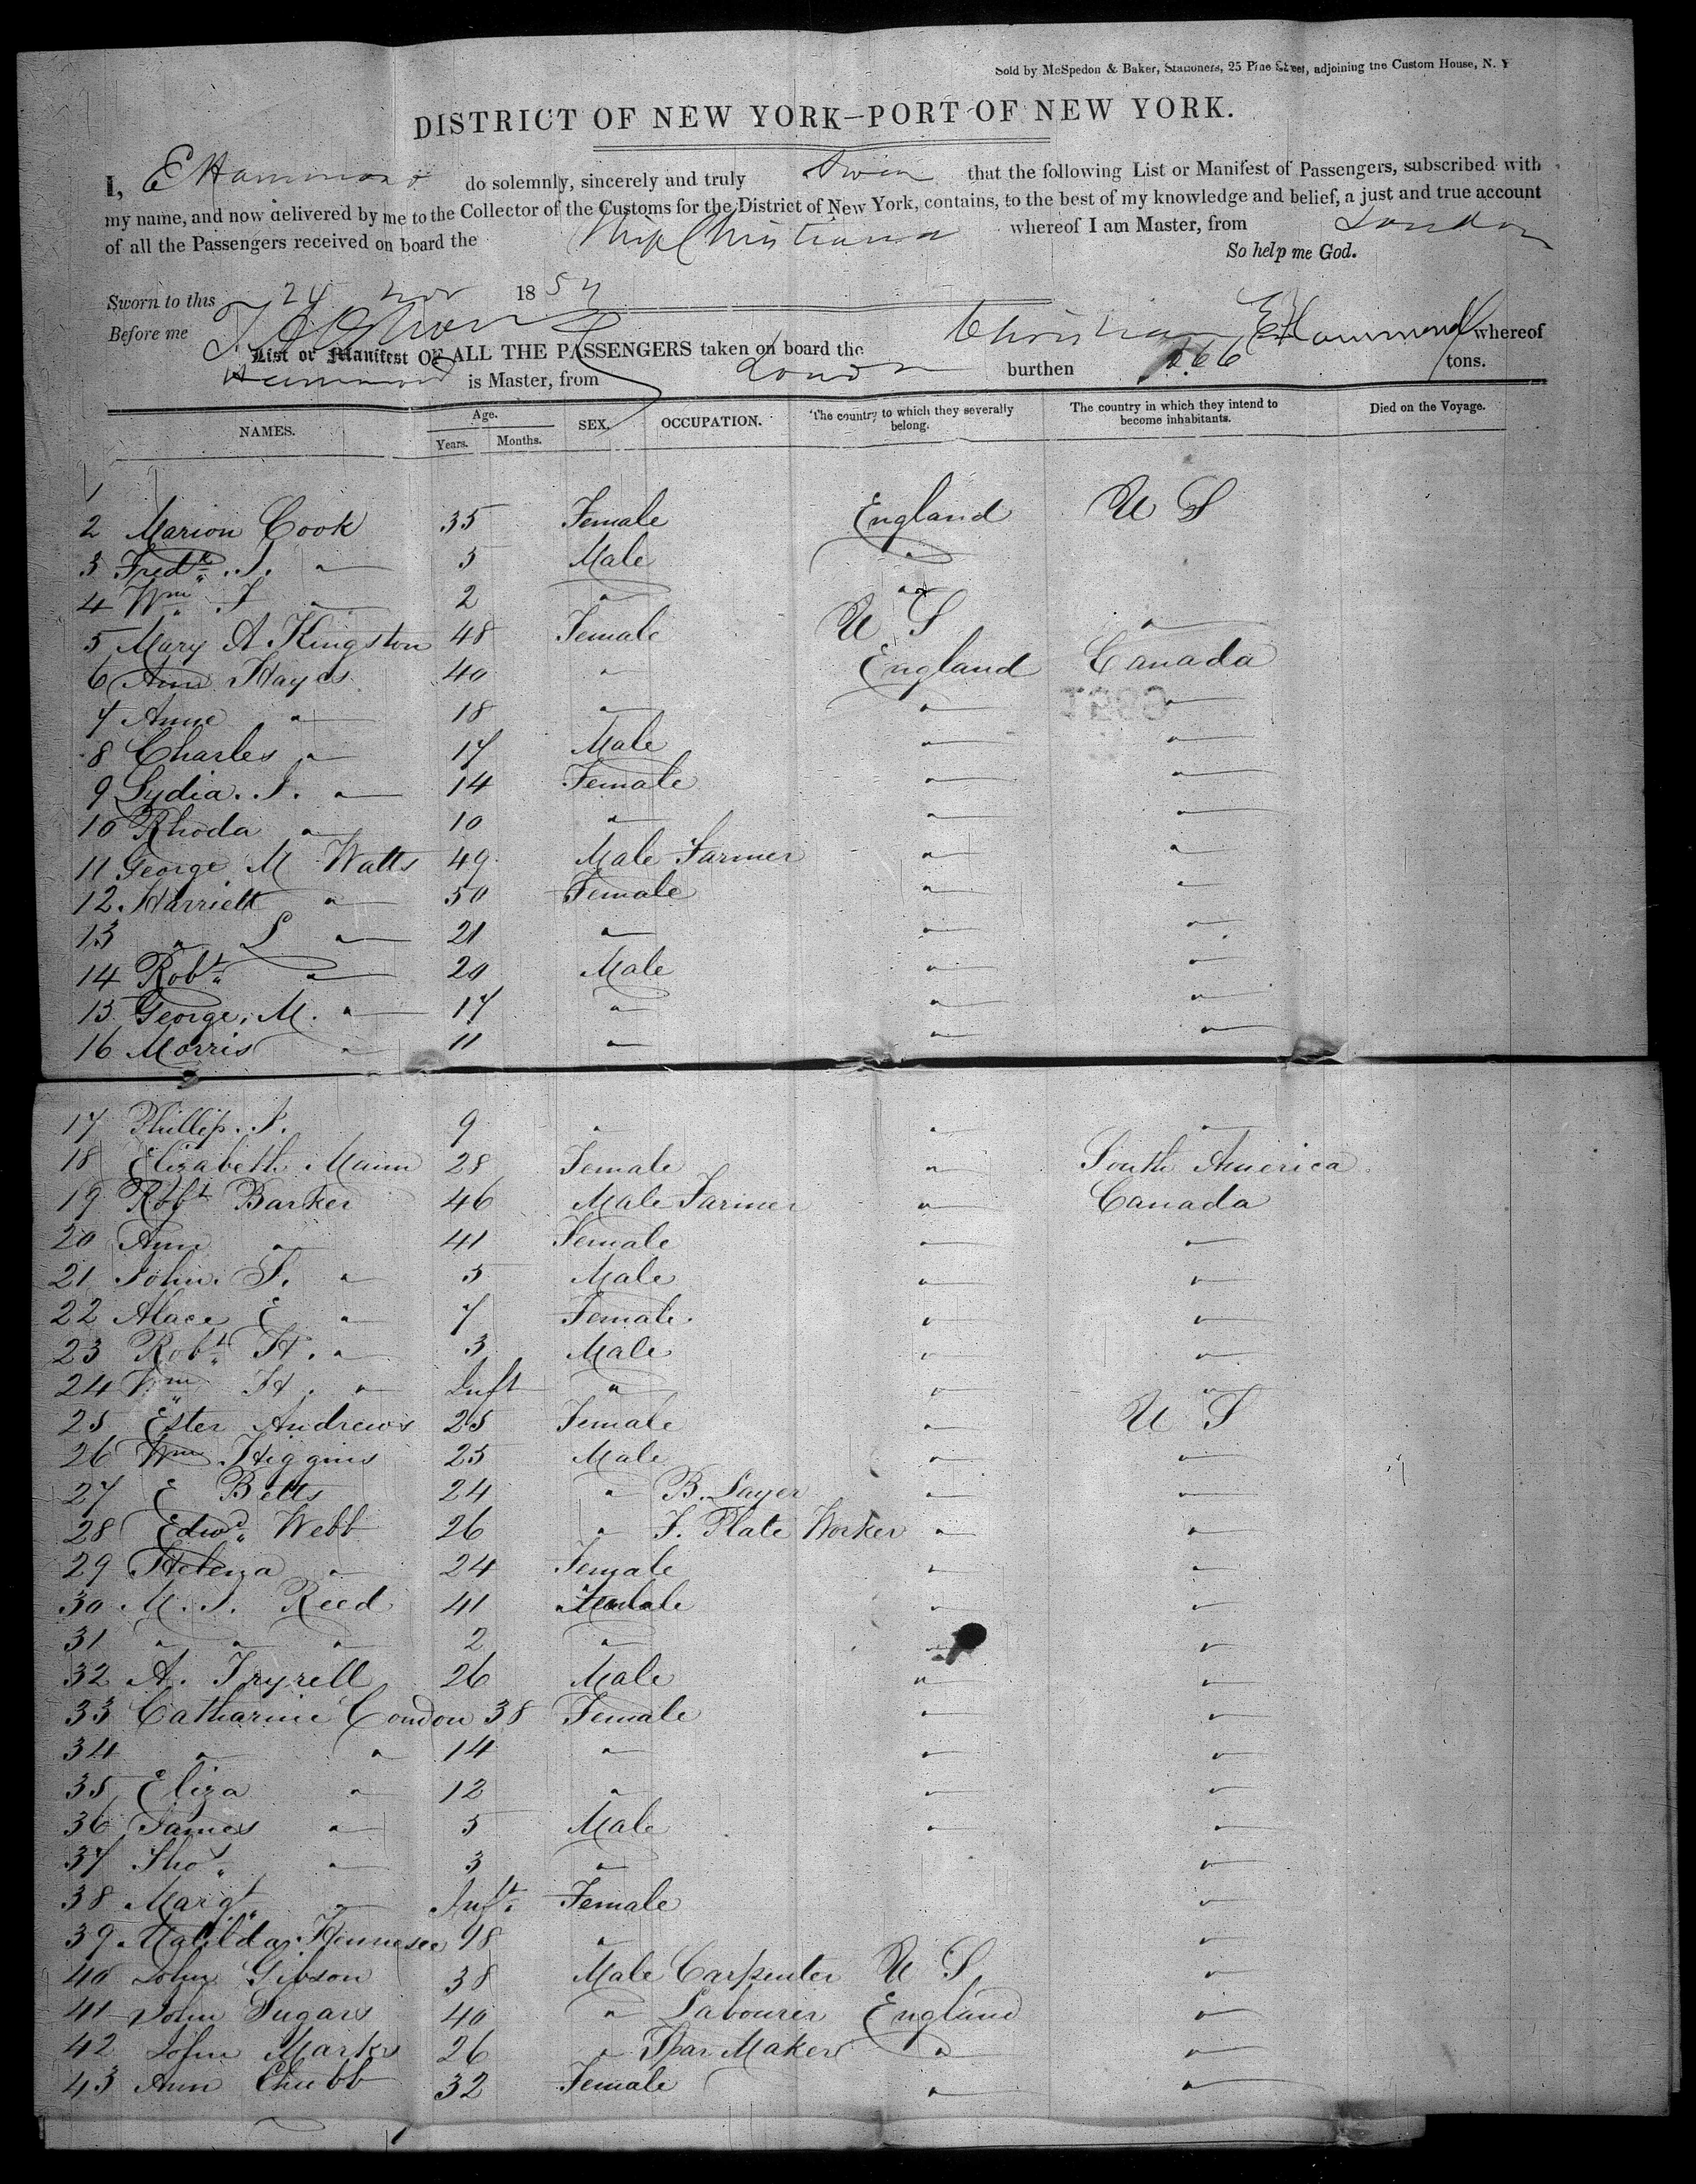 Sold by McSpedon & Baker, Stationers, 25 Pine Street, adjoining the Custom House, N. Y
DISTRICT OF NEW YORK—PORT OF NEW YORK.
I, E Hammond do solemnly, sincerely and truly swear that the following List or Manifest of Passengers, subscribed with
my name, and now delivered by me to the Collector of the Customs for the District of New York, contains, to the best of my knowledge and belief, a just and true account
of all the Passengers received on board the Ship Christiana whereof I am Master, from London
So help me God.
Sworn to this 24 Nov 18
Before me E Hammond
List or Manifest OF ALL THE PASSENGERS taken on board the Christiana whereof
Hammond is Master, from London burthen 666 tons.
NAMES. Age. Years. Months. SEX. OCCUPATION. The country to which they severally belong. The country in which they intend to become inhabitants. Died on the Voyage.
1
2 Marion Cook 35 Female England U S
3 Fredk. J. " 5 Male "
4 Wm. J " 2 " "
5 Mary A Kingston 48 Female U S "
6 Ann Hayes 40 " England Canada
7 Anne " 18 " " "
8 Charles " 17 Male " "
9 Lydia. J. " 14 Female " "
10 Rhoda " 10 " " "
11 George M Watts 49 Male Farmer " "
12 Harriett " 50 Female " "
13 " L " 21 " " "
14 Robt. " 20 Male " "
15 George. M. " 17 " " "
16 Morris " 11 " " "
17 Phillip. J. 9 " " "
18 Elizabeth Mann 28 Female " South America
19 Robt Barker 46 Male Farmer " Canada
20 Ann " 41 Female " "
21 John. F. " 5 Male " "
22 Alace E " 7 Female. " "
23 Robt. H. " 3 Male " "
24 Wm H. " Inft " " "
25 Ester Andrews 25 Female " U S
26 Wm Higgins 25 Male " "
27 E Betts 24 " B. Layer " "
28 Edwd. Webb 26 " T. Plate Worker " "
29 Helena " 24 Female " "
30 M. J. Reed 41 " "
31 " " " 2 " " "
32 A. Tryrell 26 Male " "
33 Catharine Condon 38 Female " "
34 " " 14 " " "
35 Eliza " 12 " " "
36 James " 5 Male " "
37 Thos. " 3 " "
38 Margt. " Inft. Female "
39 Matilda Hennesee 18 " "
40 John Gibson 38 Male Carpenter U S "
41 John Sugars 40 " Labourer England "
42 John Marks 26 " Spar Maker " "
43 Ann Chubb 32 Female " "